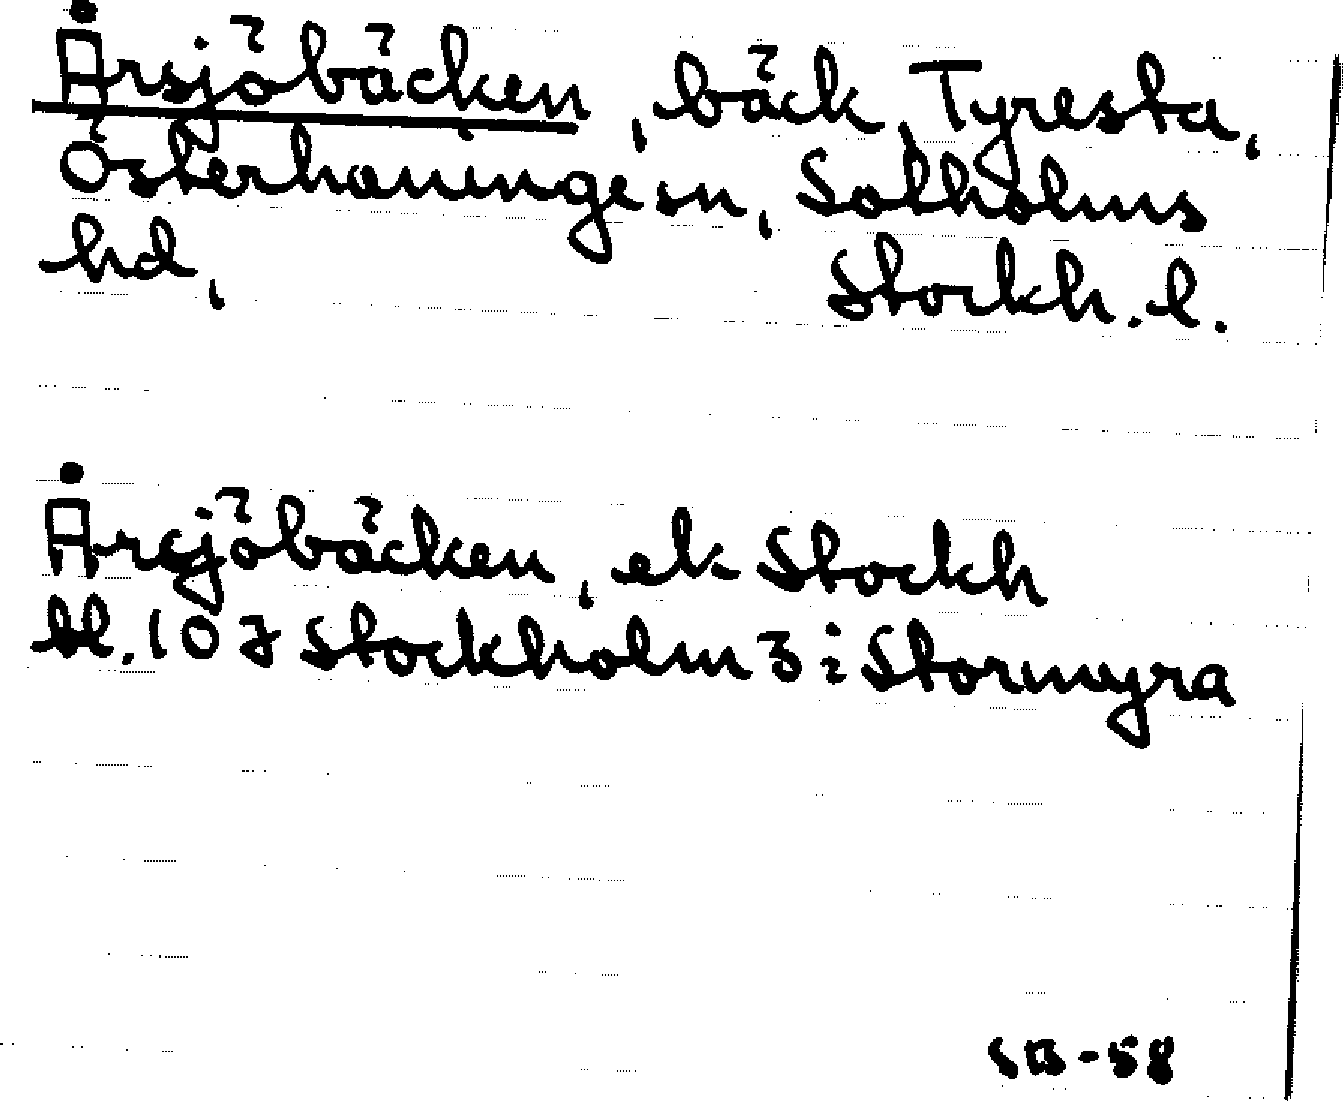 Årsjöbäcken, bäck, Tyresta,
Österhaninge sn, Sotholms
hd, Stockh. l.
Årsjöbäcken, ek Stockh
bl. 107 Stockholm 3: Stormyra
SB-58